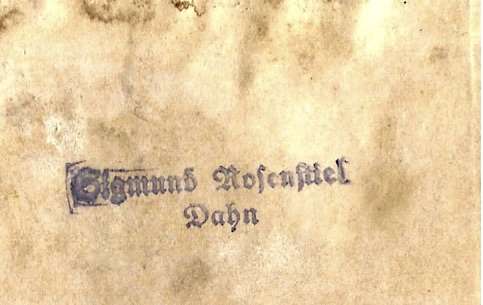 Sigmund Rosenstiel
Dahn